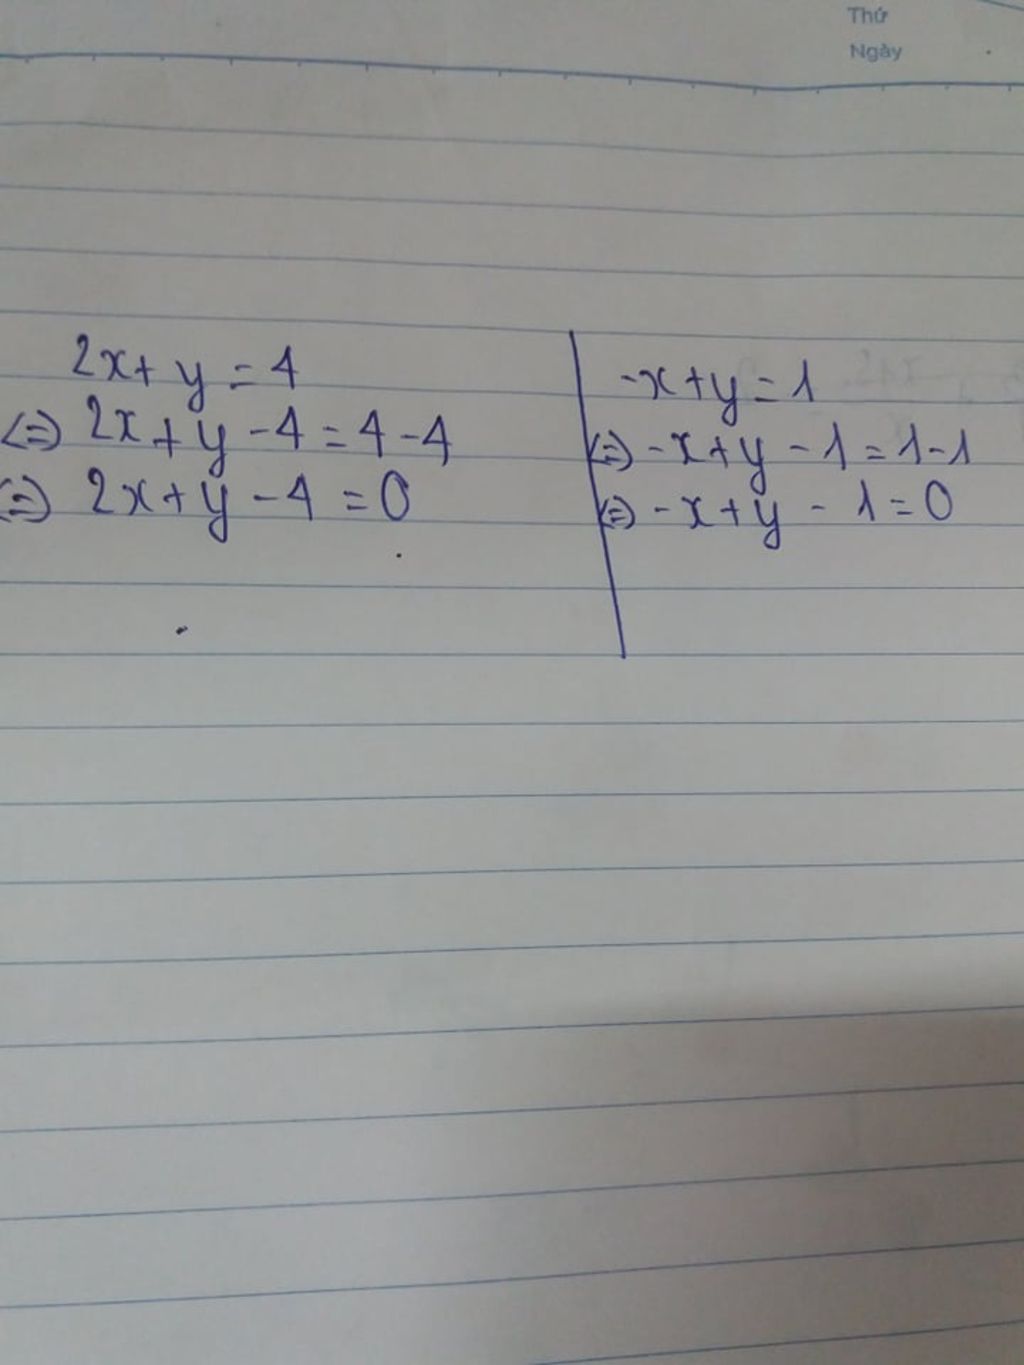 Thứ
Ngày
2x + y = 4
<=> 2x + y - 4 = 4 - 4
<=> 2x + y - 4 = 0
-x + y = 1
<=> -x + y - 1 = 1 - 1
<=> -x + y - 1 = 0